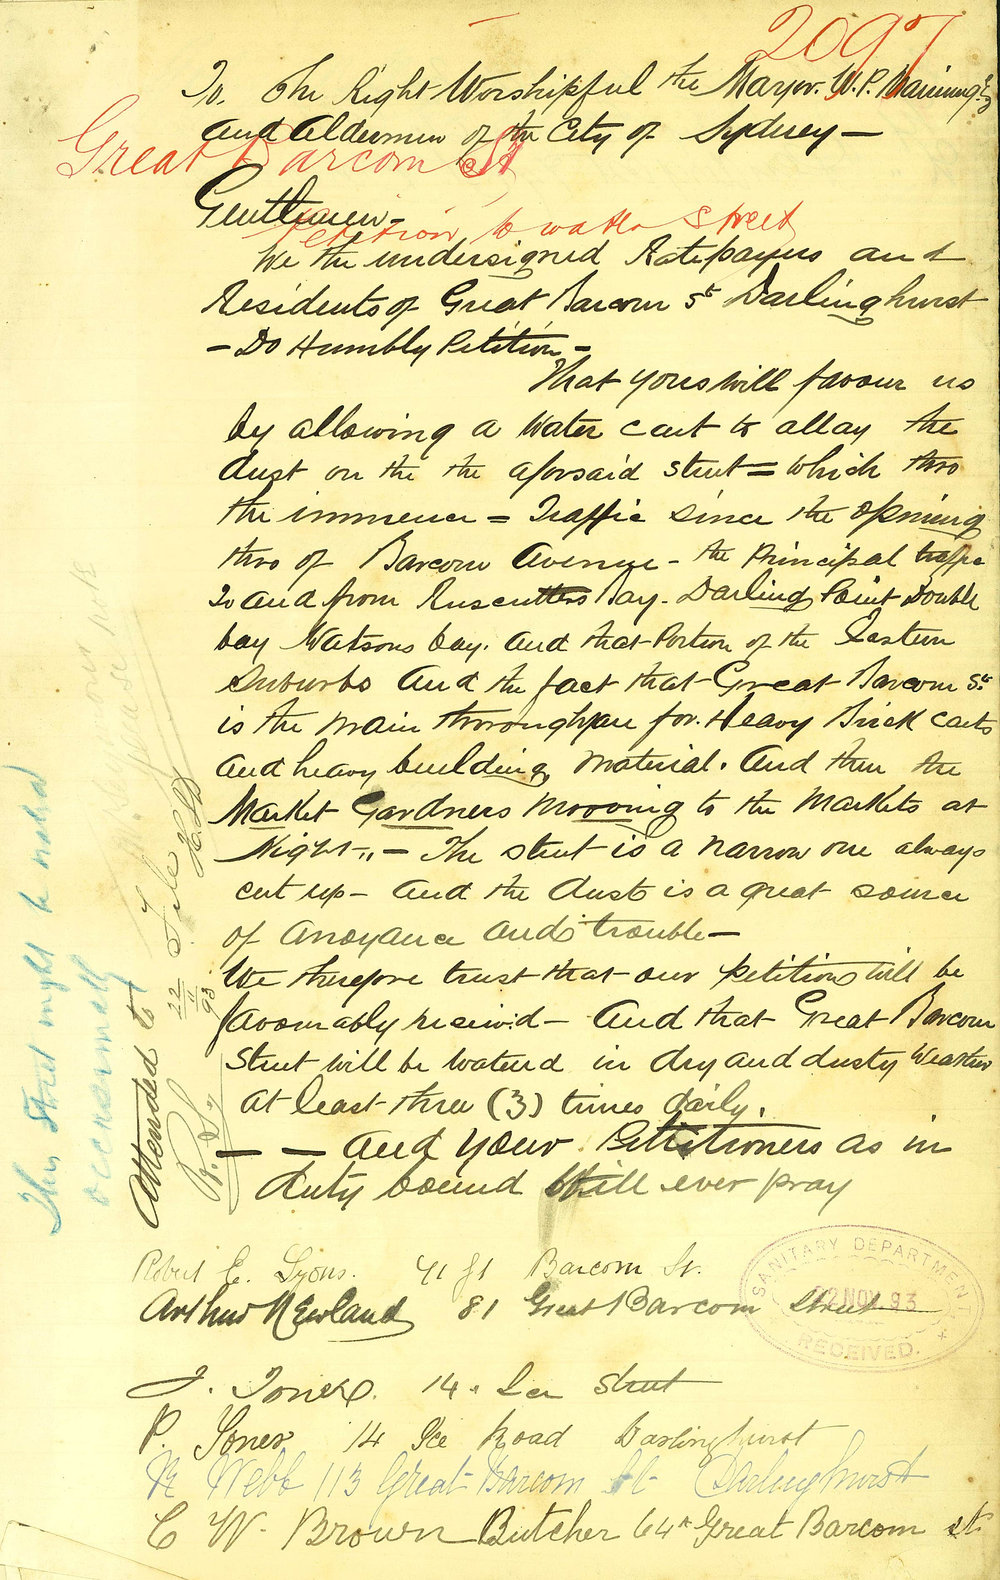 2097
To. The Right Worshipful the Mayor. W.P. Manning Esq
and Aldermen of the City of Sydney —
Great Barcom St
Gentlemen —
Petition to water street
We the undersigned Ratepayers and
Residents of Great Barcom St Darlinghurst
— Do Humbly Petition —
That you will favour us
by allowing a Water cart to allay the
dust on the the aforsaid street = which thro
the immence = Traffic since the opening
thro of Barcom Avenue - the Principal traffic
To and from Ruscutters Bay. Darling Point Double
bay Watsons bay. and that Portion of the Eastern
Suburbs And the fact that Great Barcom St
is the main thoroughfare for. Heavy Brick carts
and heavy building material. And then the
Market Gardners Mooving to the Markets at
Night „ — The street is a narrow one always
cut up — and the dust is a great source
of anoyance and trouble —
We therefore trust that our petition will be
favourably received — And that Great Barcom
Street will be watered in dry and dusty Weather
at least three (3) times daily.
— — And your Petitioners as in
duty bound will ever pray
Robert E. Lyons. 71 Gt Barcom St.
Arthur Newland 81 Great Barcom Street
J. Jones. 14. Ice Street
P. Jones 14 Ice Road Darlinghurst
Webb 113 Great Barcom St Darlinghurst
C W. Brown Butcher 64A Great Barcom st.
SANITARY DEPARTMENT
22 NOV. 93
RECEIVED.
This Street might be watered
occasionally
Attended to
22/11/93